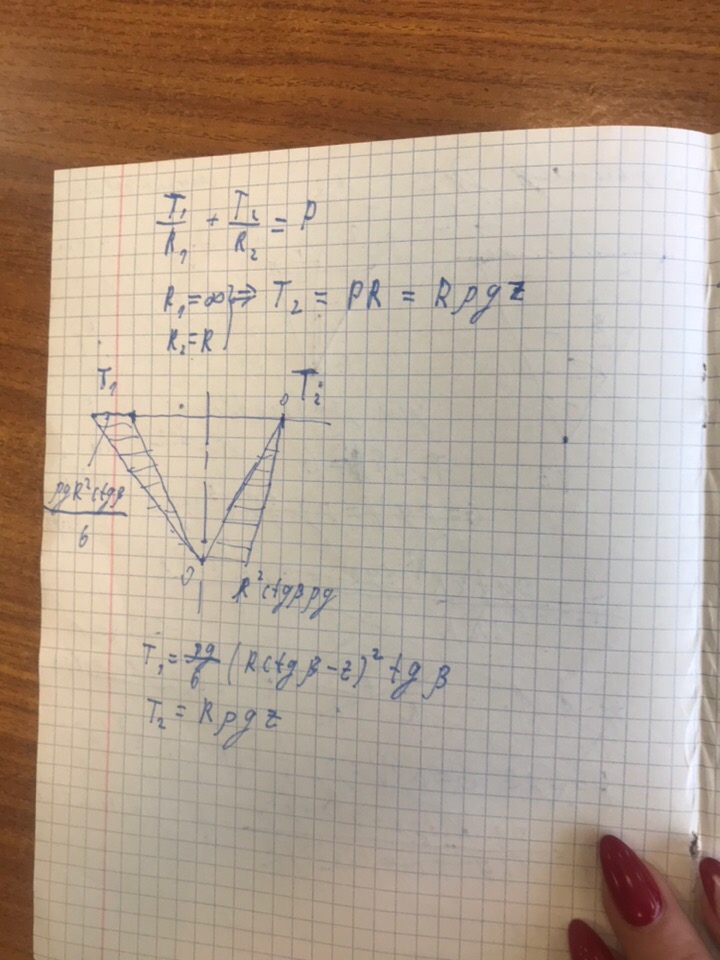 T₁/R₁ + T₂/R₂ = P
R₁ = ∞ } ⇒ T₂ = PR = Rρgz
R₂ = R
T₁ T₂
0
ρgR²ctgβ/6
0
R²ctgβρg
T₁ = ρg/6 (Rctgβ - z)² tgβ
T₂ = Rρgz